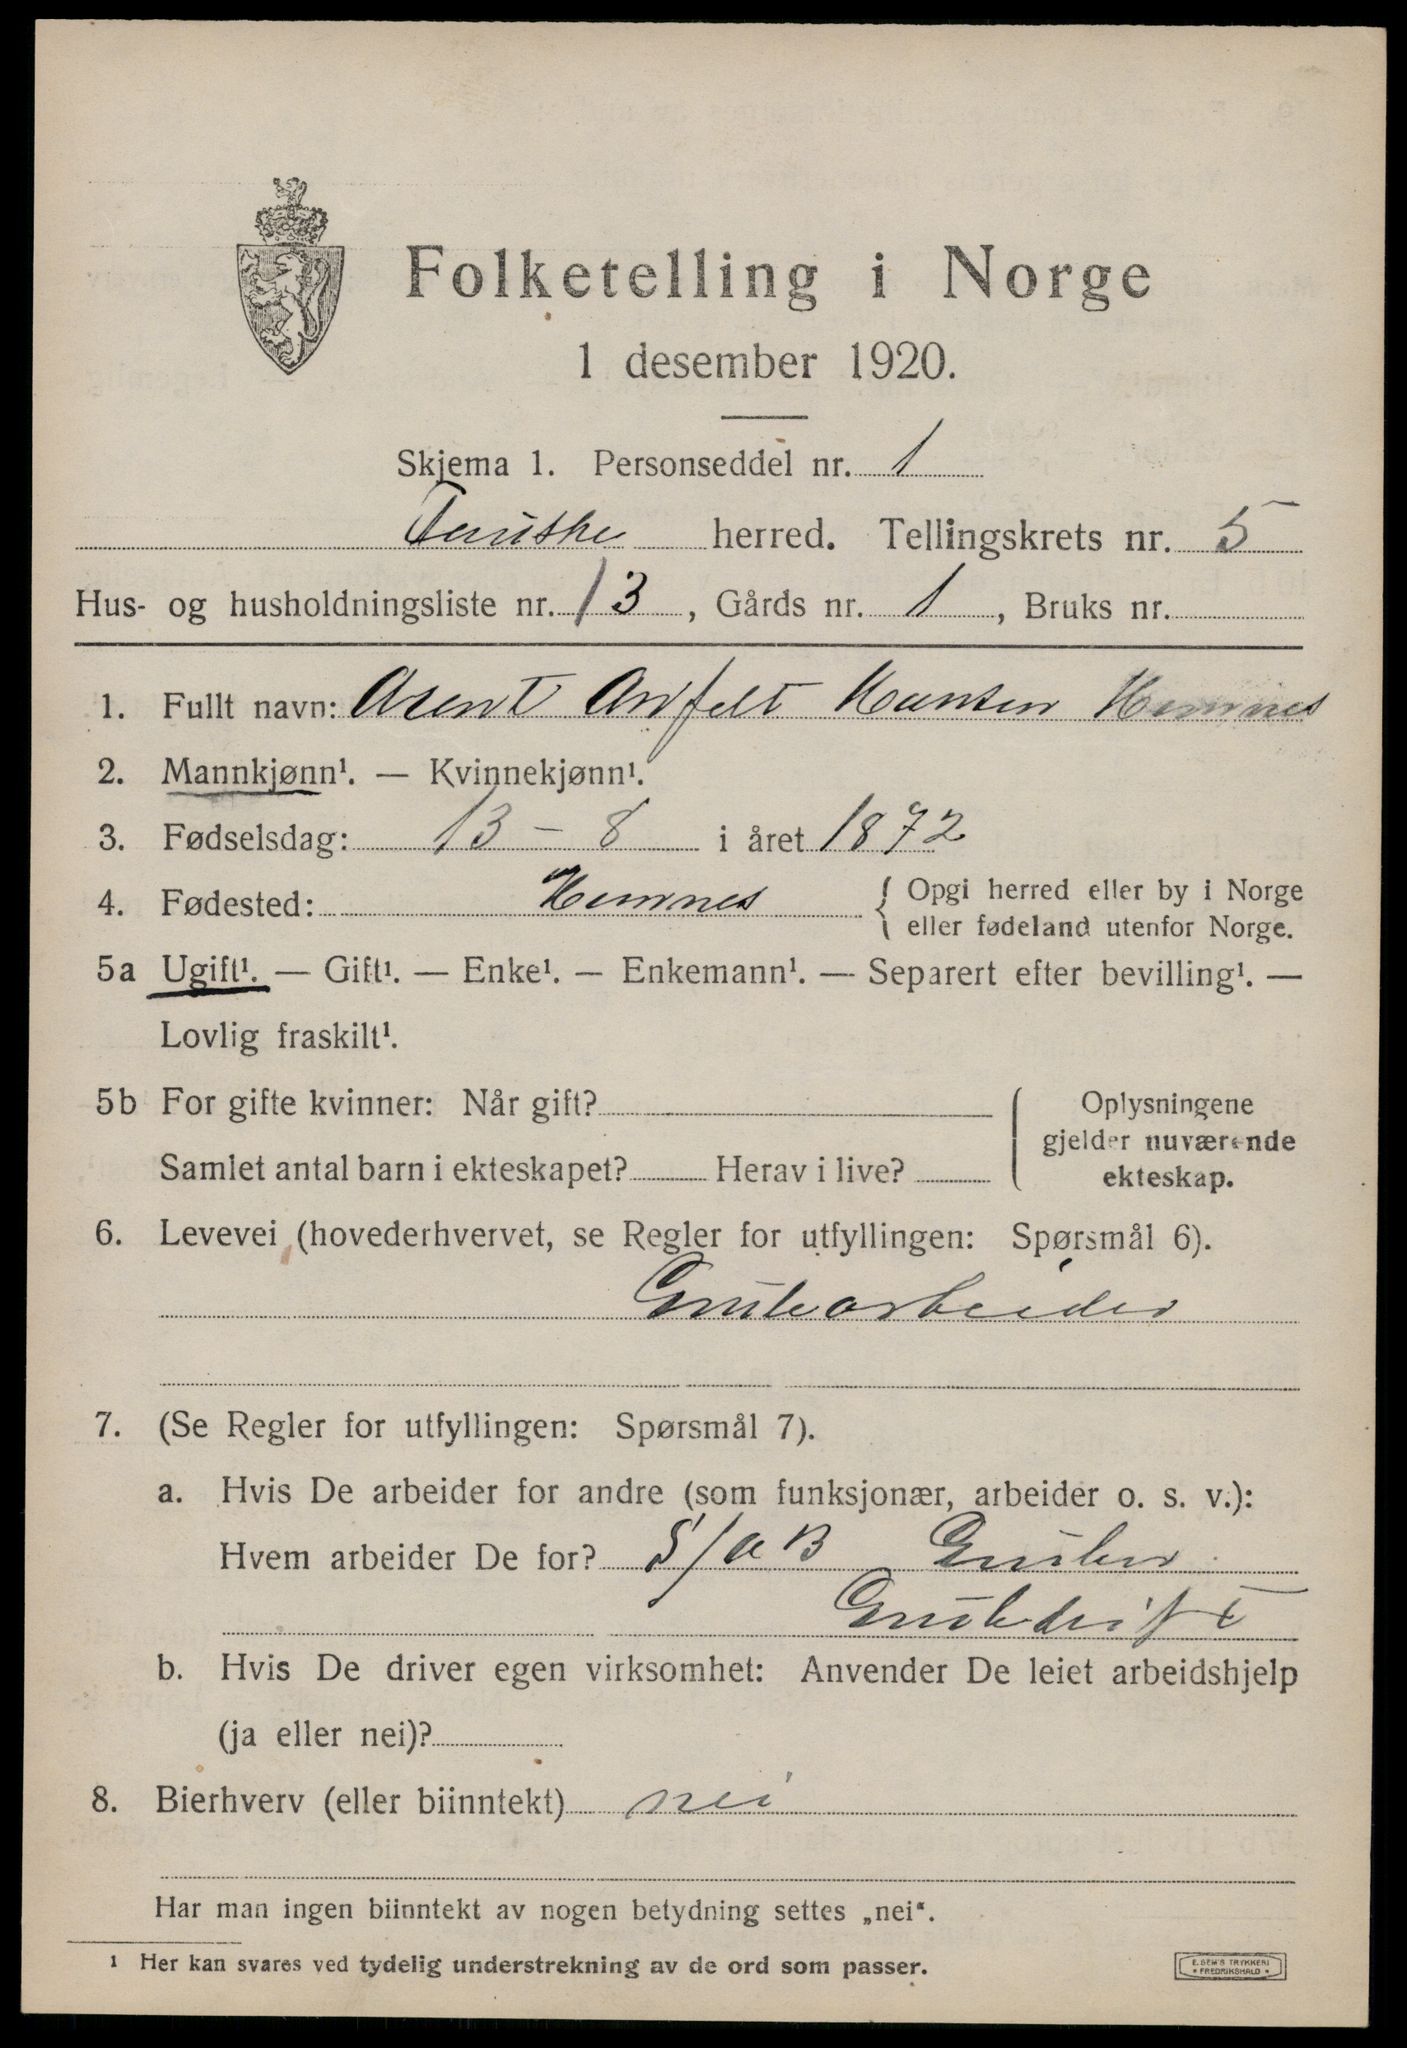 Folketelling i Norge
1 desember 1920.
Skjema 1. Personseddel nr. 1
Fauske herred. Tellingskrets nr. 5
Hus- og husholdningsliste nr. 13, Gårds nr. 1, Bruks nr.
1. Fullt navn: Arent Arnfelt Hansen Hemnes
2. Mannkjønn¹. — Kvinnekjønn¹.
3. Fødselsdag: 13 – 8 i året 1872
4. Fødested: Hemnes { Opgi herred eller by i Norge
eller fødeland utenfor Norge.
5a Ugift¹. — Gift¹. — Enke¹. — Enkemann¹. — Separert efter bevilling¹. —
Lovlig fraskilt¹.
5b For gifte kvinner: Når gift?
Samlet antal barn i ekteskapet? Herav i live?
Oplysningene
gjelder nuværende
ekteskap.
6. Levevei (hovederhvervet, se Regler for utfyllingen: Spørsmål 6).
Grubearbeider
7. (Se Regler for utfyllingen: Spørsmål 7).
a. Hvis De arbeider for andre (som funksjonær, arbeider o. s. v.):
Hvem arbeider De for? S/aB Gruber
Grubedrift
b. Hvis De driver egen virksomhet: Anvender De leiet arbeidshjelp
(ja eller nei)?
8. Bierhverv (eller biinntekt) nei
Har man ingen biinntekt av nogen betydning settes „nei".
¹ Her kan svares ved tydelig understrekning av de ord som passer.
E. SEM'S TRYKKERI
* FREDRIKSHALD *